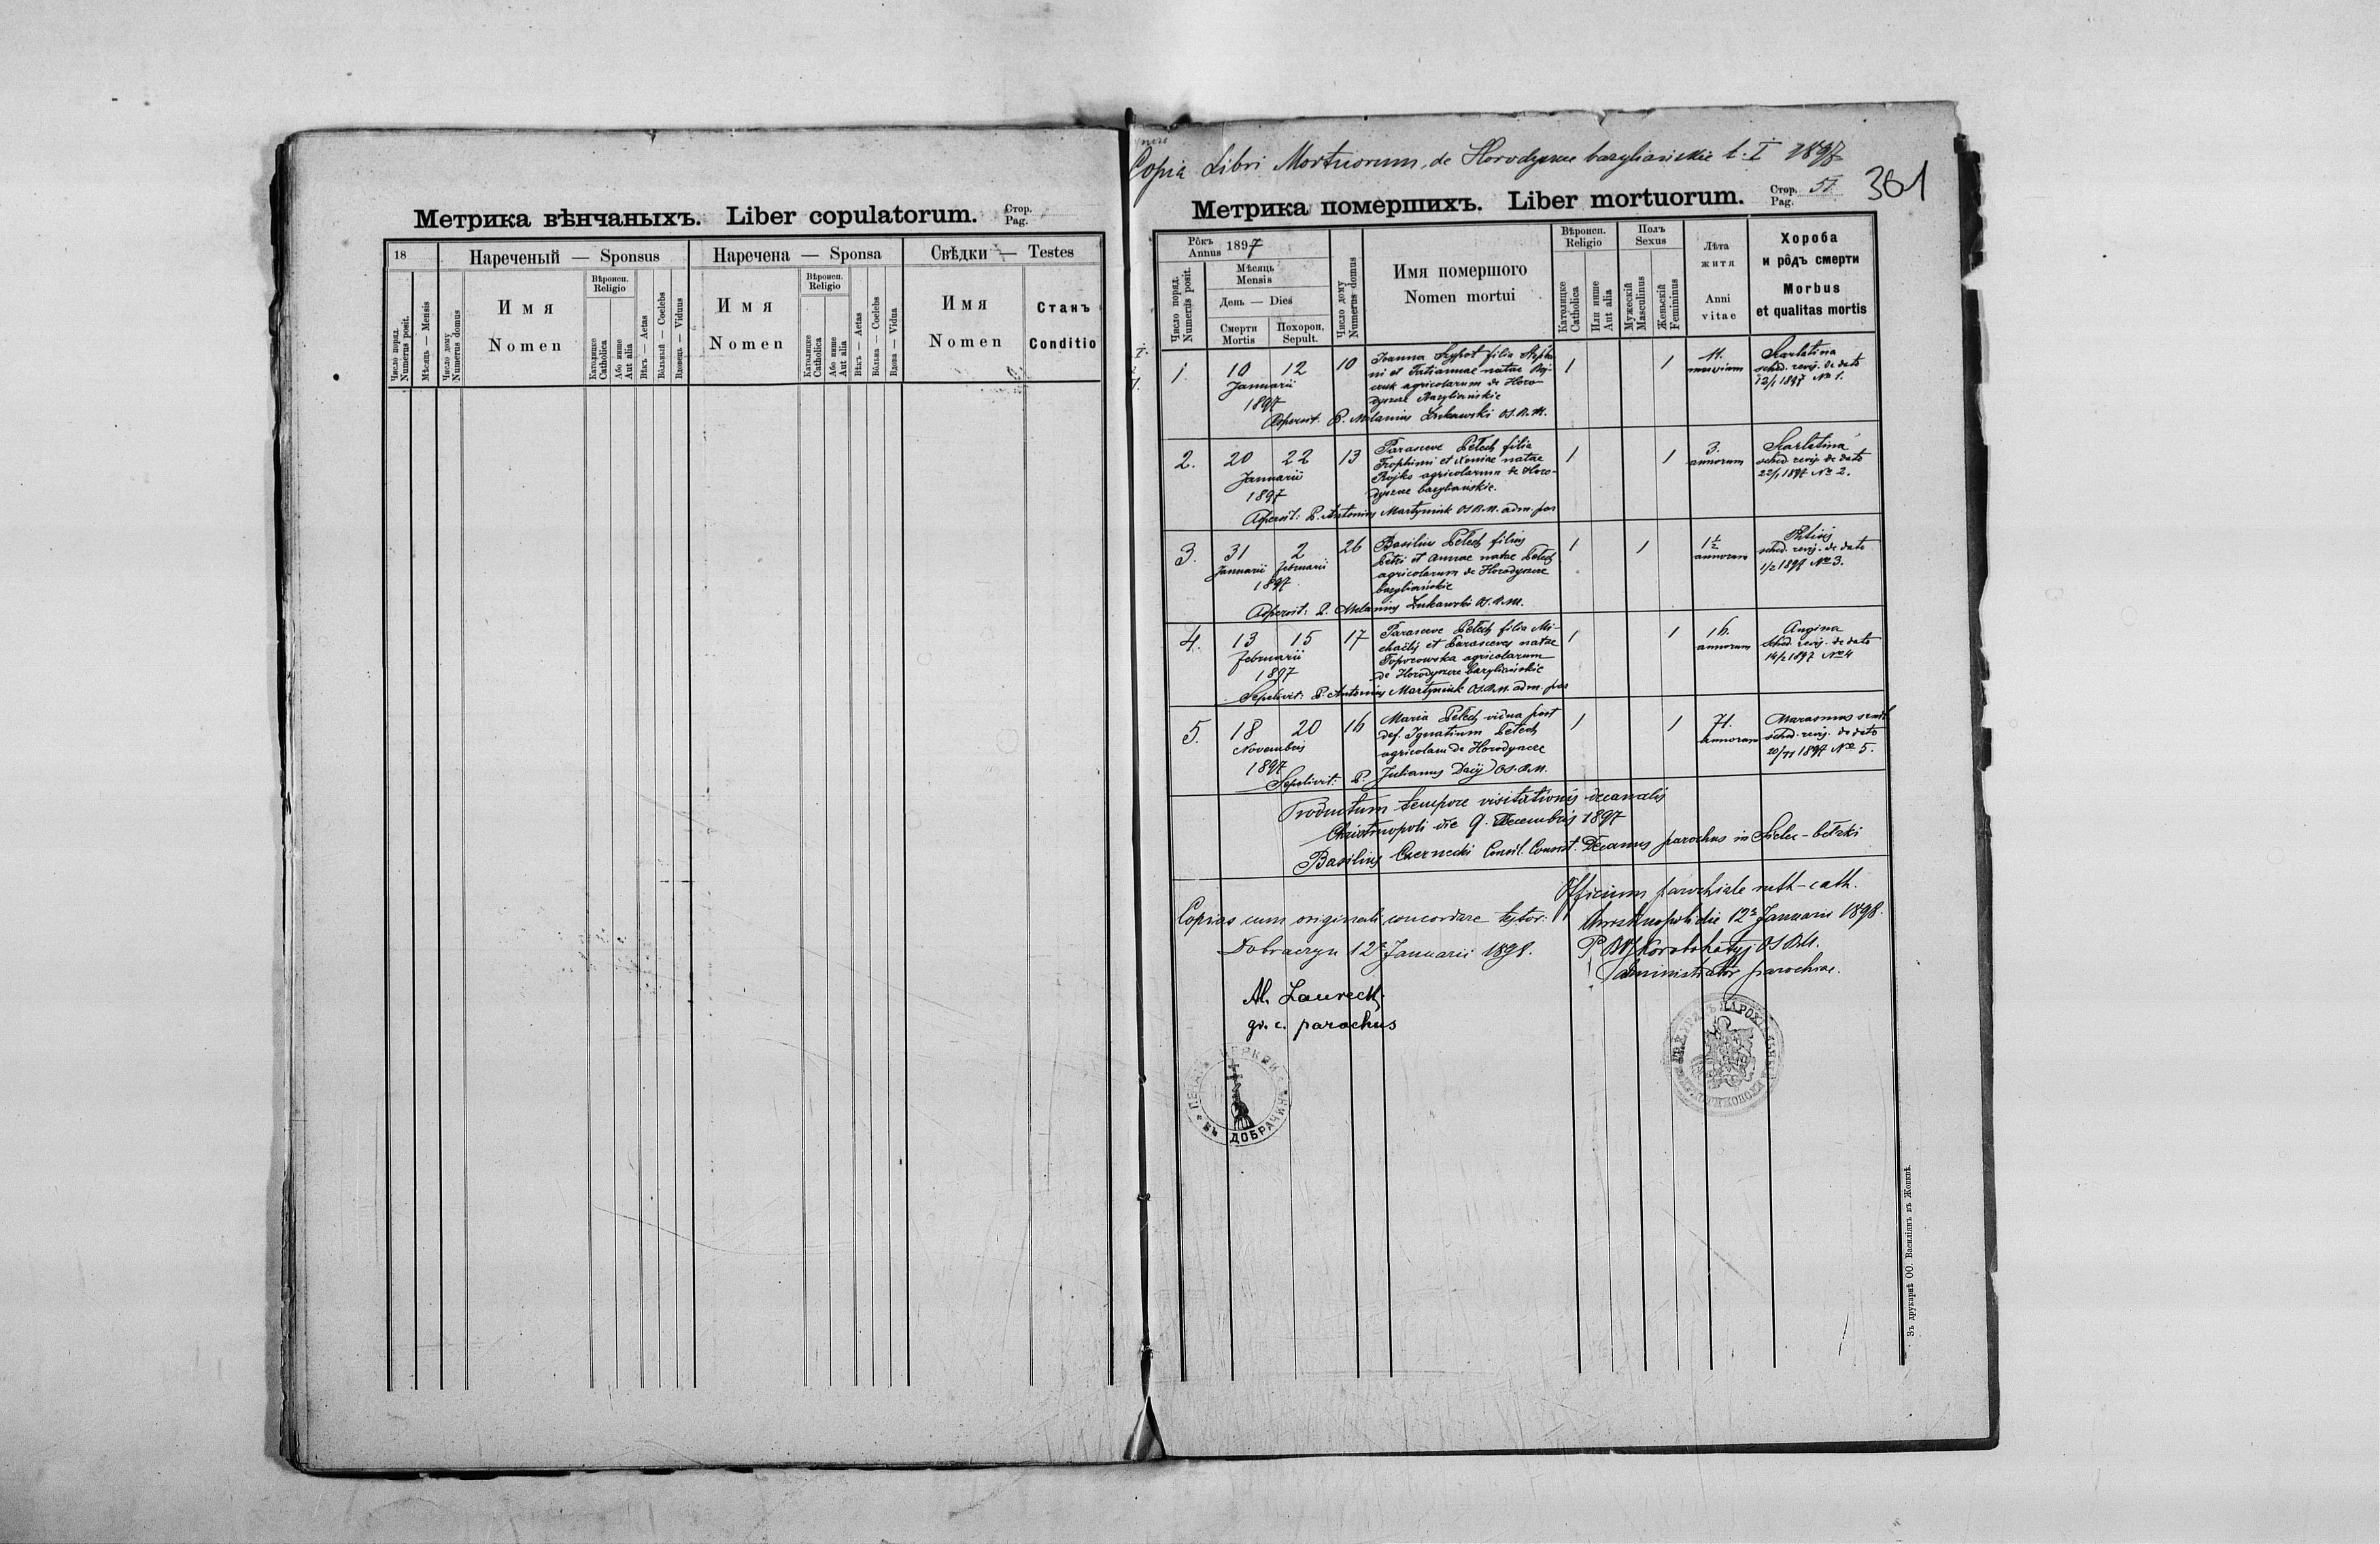 Метрика вѣнчаныхъ. Liber copulatorum.
Стор.
Pag.
18
Нареченый — Sponsus
Наречена — Sponsa
Свѣдки — Testes
Число поряд.
Numerus posit.
Мѣсяць — Mensis
Число дому
Numerus domus
Имя
Nomen
Вѣроисп.
Religio
Католицке
Catholica
Або инше
Aut alia
Вѣкъ — Aetas
Вôльный — Coelebs
Вдовець — Viduus
Имя
Nomen
Вѣроисп.
Religio
Католицке
Catholica
Або инше
Aut alia
Вѣкъ — Aetas
Вôльна — Coelebs
Вдова — Vidua
Имя
Nomen
Станъ
Conditio
Copia Libri Mortuorum, de Horodyszcze bazyliańskie t. I 1897
361
Метрика помершихъ. Liber mortuorum.
Стор.
Pag.
51
Рôкъ
Annus 1897
Число поряд.
Numerus posit.
Мѣсяць
Mensis
День — Dies
Смерти
Mortis
Похорон.
Sepult.
Число дому
Numerus domus
Имя помершого
Nomen mortui
Вѣроисп.
Religio
Католицке
Catholica
Или инше
Aut alia
Полъ
Sexus
Мужескій
Masculinus
Женьскій
Femininus
Лѣта
житя
Anni
vitae
Хороба
и рôдъ смерти
Morbus
et qualitas mortis
1. 10 12 10 Joanna Szypot filia Stepha
ni et Tatiannae natae
agricolarum de Horo-
dyszcze Bazyliańskie
Januarii
1897
1 1 11. mensium
Scarlatina
sched. revis. de dato
12/1 1897 No 1.
Aspersit: P. Melanius Łukawski OS.B.M.
2. 20 22 13 Parasceve Pełech filia
Trophimi et Xeniae natae
Rojko agricolarum de Horo-
dyszcze bazyliańskie.
Januarii
1897
1 1 3. annorum
Scarlatina
sched. revis. de dato
22/1 1897 No 2.
Aspersit: P. Antonius Martyniuk OSBM. adm. par
3. 31 2 26 Basilius Pełech filius
Petri et Annae natae Pełech
agricolarum de Horodyszcze
bazyliańskie
Januarii Februarii
1897
1 1 1½ annorum
Phtisis
sched. revis. de dato
1/2 1897 No 3.
Aspersit: P. Melanius Łukawski OS.B.M.
4. 13 15 17 Parasceve Pełech filia Mi-
chaëlis et Parasceves natae
Toporowska agricolarum
de Horodyszcze bazyliańskie
Februarii
1897
1 1 16. annorum
Angina
sched. revis. de dato
14/2 1897 No 4
Sepelivit: P. Antonius Martyniuk OS.B.M. adm. par
5. 18 20 16 Maria Pełech vidua post
def. Ignatium Pełech
agricolam de Horodyszcze
Novembris
1897
1 1 71. annorum
Marasmus senil.
sched. revis. de dato
20/11 1897 No 5.
Sepelivit: P. Julianus Dacij OS.B.M.
Productum tempore visitationis decanalis
Christinopoli die 9. Decembris 1897
Basilius Czernecki Consil. Consist. Decanus parochus in Sielec-bełzki
Officium parochiale ruth-cath.
Christinopoli die 12 Januarii 1898.
P. Korobchatyj OSBM.
administrator parochiae.
Copias cum originali concordare testor:
Dobraczyn 12 Januarii 1898.
gr. c. parochus
ДОБРАЧИНѢ
Зъ друкарнѣ ОО. Василіянъ въ Жовквѣ.